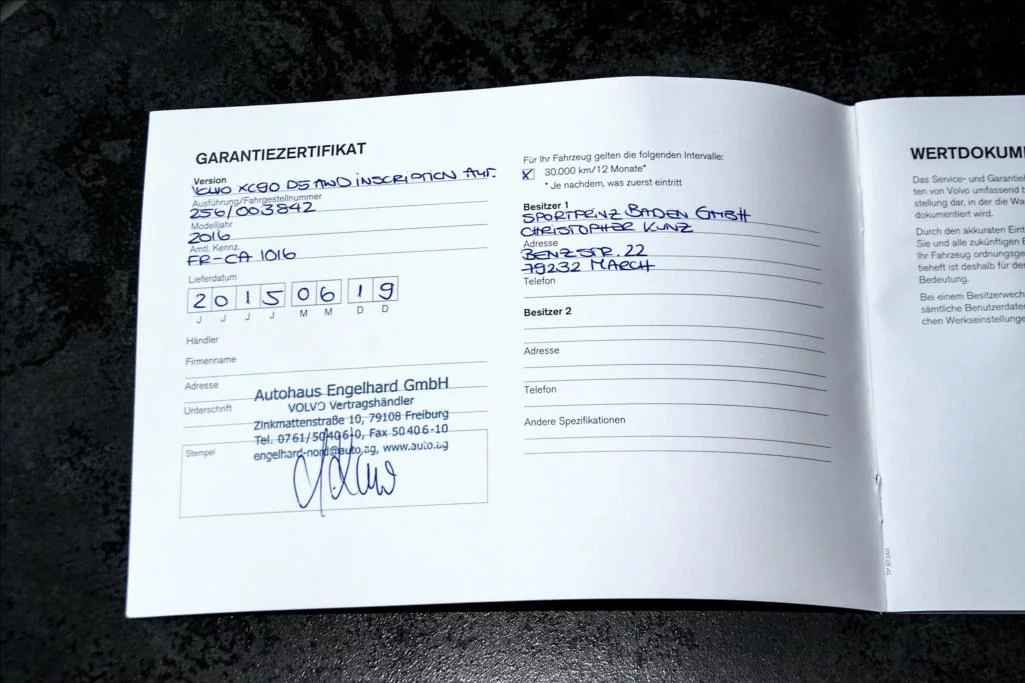 GARANTIEZERTIFIKAT
Version
VOLVO XC90 D5 AWD INSCRIPTION AUT.
Ausführung/Fahrgestellnummer
256/003842
Modelljahr
2016
Amtl. Kennz.
FR-CA 1016
Lieferdatum
2 0 1 5 0 6 1 9
J J J J M M D D
Händler
Firmenname
Adresse
Unterschrift
Stempel
Autohaus Engelhard GmbH
VOLVO Vertragshändler
Zinkmattenstraße 10, 79108 Freiburg
Tel. 0761/50406-0, Fax 50406-10
engelhard-nord@auto.ag, www.auto.ag
Für Ihr Fahrzeug gelten die folgenden Intervalle:
X 30.000 km/12 Monate*
* Je nachdem, was zuerst eintritt
Besitzer 1
SPORTPRINZ BADEN GMBH
CHRISTOPHER KUNZ
Adresse
BENZSTR. 22
79232 MARCH
Telefon
Besitzer 2
Adresse
Telefon
Andere Spezifikationen
TP 87340
WERTDOKUM
Das Service- und Garantiel
ten von Volvo umfassend b
stellung dar, in der die Wa
dokumentiert wird.
Durch den akkuraten Eint
Sie und alle zukünftigen E
Ihr Fahrzeug ordnungsge
tieheft ist deshalb für de
Bedeutung.
Bei einem Besitzerwech
sämtliche Benutzerdate
chen Werkseinstellunge